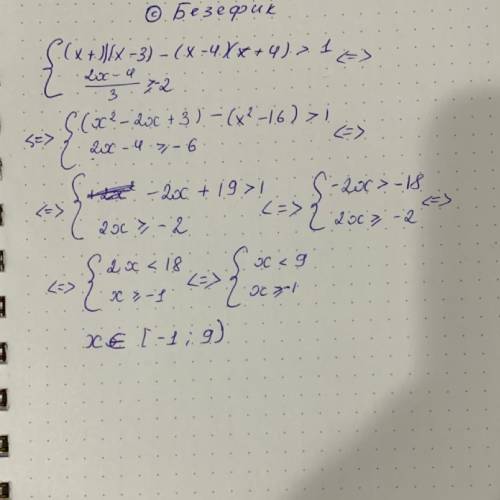 © Безефик
{ (x+1)(x-3) - (x-4)(x+4) > 1 <=>
{ 2x-4/3 ≥ -2
<=> { (x² - 2x + 3) - (x² - 16) > 1 <=>
{ 2x - 4 ≥ -6
<=> { -2x + 19 > 1 <=> { -2x > -18 <=>
{ 2x ≥ -2 { 2x ≥ -2
<=> { 2x < 18 <=> { x < 9
{ x ≥ -1 { x ≥ -1
x ∈ [-1; 9)